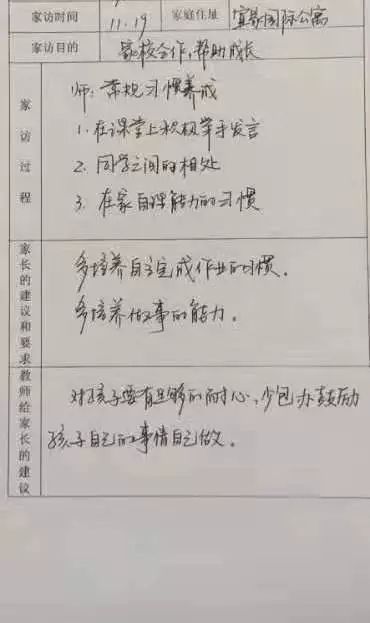 家访时间 11.19 家庭住址 宜家国际公寓
家访目的 家校合作,帮助成长
家访过程
师:常规习惯养成
1.在课堂上积极举手发言
2.同学之间的相处
3.在家自理能力的习惯
家长的建议和要求
多培养自主完成作业的习惯。
多培养做事的能力。
教师给家长的建议
对孩子要有足够的耐心,少包办鼓励
孩子自己的事情自己做。